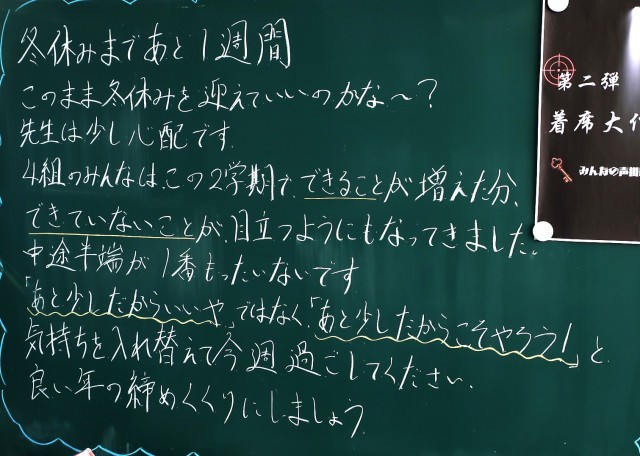 冬休みまであと1週間
このまま冬休みを迎えていいのかな〜?
先生は少し心配です。
4組のみんなは、この2学期で、できることが増えた分、
できていないことが、目立つようにもなってきました。
中途半端が1番もったいないです
「あと少しだからいいや」ではなく、「あと少しだからこそやろう!」と
気持ちを入れ替えて今週過ごしてください。
良い年の締めくくりにしましょう。
第二弾
着席大作
みんなの声掛